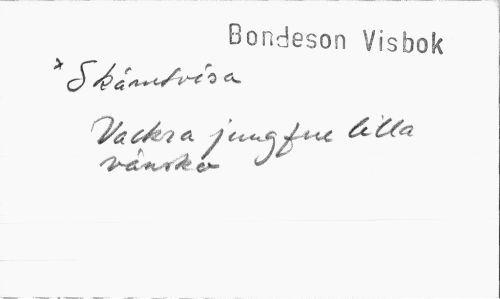 Bondeson Visbok
* Skämtvisa
Vackra jungfru lilla
vänska